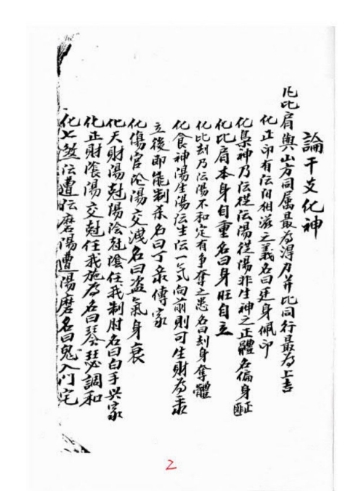 論干支化神
凡比肩與山方同属最為得力并比同行最為上吉
化正印有陰陽相滋之義名曰連身佩印
化梟神乃陰從陰陽從陽非生神之正體名偏身
化比肩本身自重名曰身旺自立
化比刦乃陰陽不和定有爭奪之愚名曰刦身奪體
化食神陽生陽陰生陰一气向前則可生財為
立後即能制杀名曰丁杀傳家
化傷官陰陽交洩名曰盗氣身衰
化天財陽尅陽陰尅陰任我制肘名曰白手興家
化正財陰陽交尅任我施為名曰琴瑟調和
化七煞陰遭陰磨陽遭陽磨名曰鬼入門宅
2